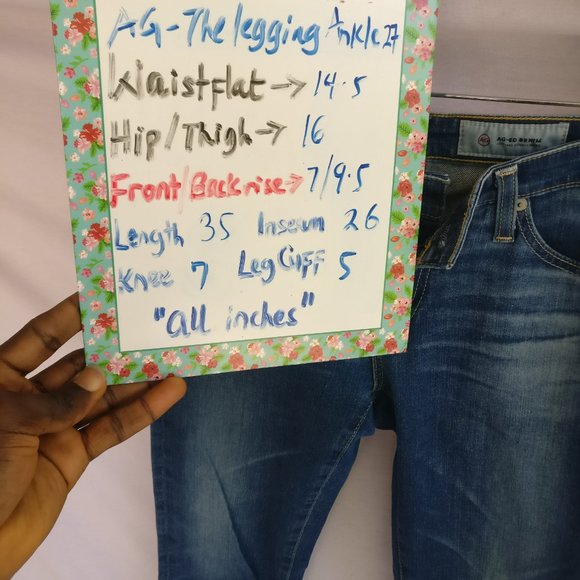 AG-The legging Ankle 27
Waist flat → 14.5
Hip/Thigh → 16
Front/Back rise → 7/9.5
Length 35 Inseam 26
Knee 7 Leg Cuff 5
"all inches"
AG
AG-ED DENIM